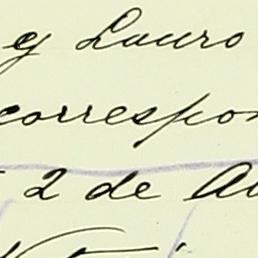 y Lauro
correspon
2 de A